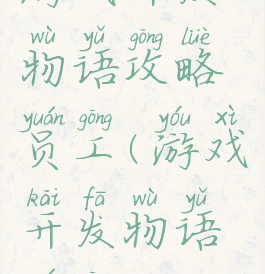 wù yǔ gōng lüè
物语攻略
yuán gōng yóu xì
员工(游戏
kāi fā wù yǔ
开发物语